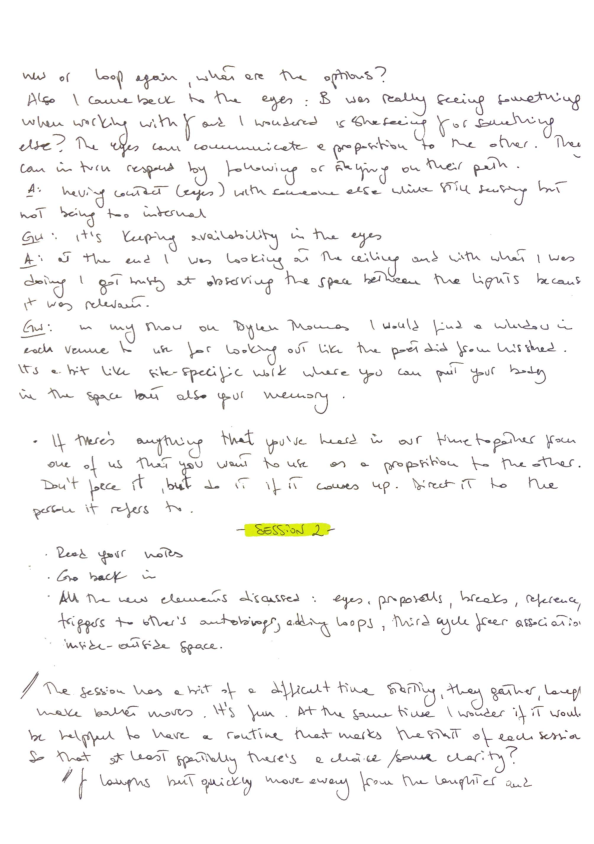 new or loop again, what are the options?
Also I came back to the eyes: B was really seeing something
when working with J and I wondered is she seeing J or something
else? The eyes can communicate a proposition to the other. They
can in turn respond by following or staying on their path.
A: having contact (eyes) with someone else while still sensing but
not being too internal
Gw: it's keeping availability in the eyes
A: at the end I was looking at the ceiling and with what I was
doing I got busy at observing the space between the lights becaus
it was relevant.
Gw: in my show on Dylan Thomas I would find a window in
each venue to use for looking out like the poet did from his shed.
It's a bit like site-specific work where you can put your body
in the space but also your memory.
· If there's anything that you've heard in our time together from
one of us that you want to use as a proposition to the other.
Don't force it, but do it if it comes up. Direct it to the
person it refers to.
- SESSION 2 -
· Read your notes
· Go back in
· All the new elements discussed: eyes, proposals, breaks, reference,
triggers to other's autobiogr, adding loops, third cycle freer associatio
inside-outside space.
// The session has a bit of a difficult time starting, they gather, laugh
make ballet moves. It's fun. At the same time I wonder if it woul
be helpful to have a routine that marks the start of each session
So that at least spatially there's a choice / some clarity?
// J laughs but quickly move away from the laughter and